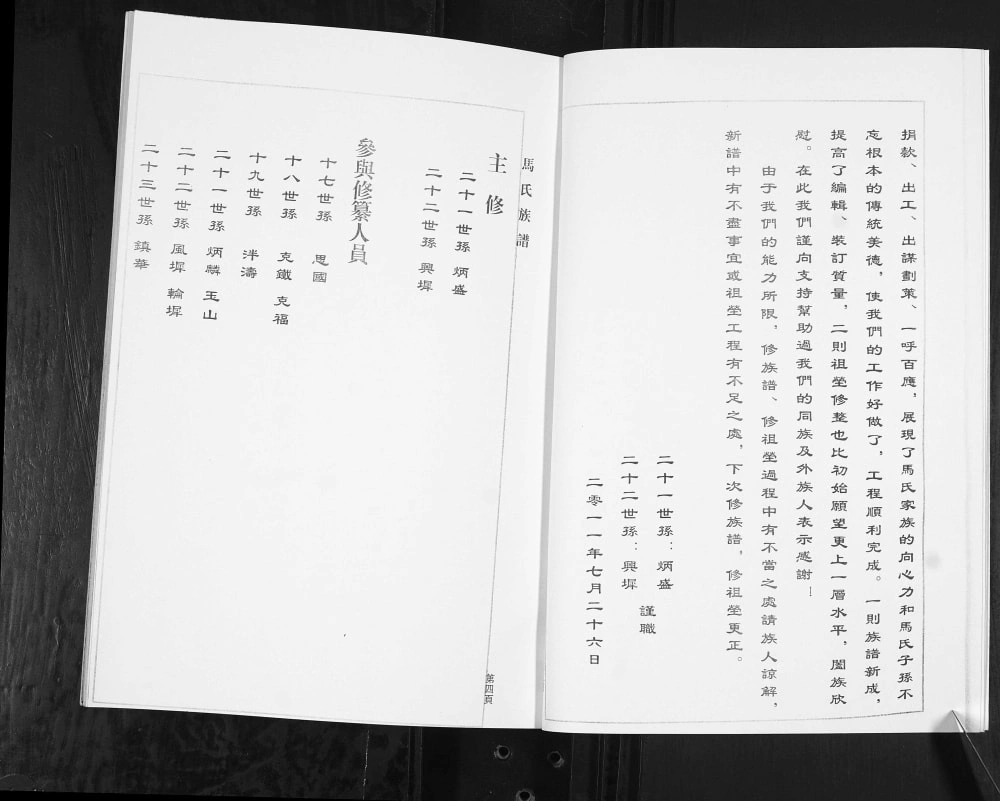 捐款、出工、出謀劃策、一呼百應，展現了馬氏家族的向心力和馬氏子孫不
忘根本的傳統美德，使我們的工作好做了，工程順利完成。一則族譜新成，
提高了編輯、裝訂質量，二則祖塋修整也比初始願望更上一層水平，闔族欣
慰。在此我們謹向支持幫助過我們的同族及外族人表示感謝！
由于我們的能力所限，修族譜、修祖塋過程中有不當之處請族人諒解，
新譜中有不盡事宜或祖塋工程有不足之處，下次修族譜，修祖塋更正。
二十一世孫：炳盛
謹職
二十二世孫：興墀
二零一一年七月二十六日
馬氏族譜
第四頁
主修
二十一世孫 炳盛
二十二世孫 興墀
參與修纂人員
十七世孫 思國
十八世孫 克鐵 克福
十九世孫 泮濤
二十一世孫 炳麟 玉山
二十二世孫 風墀 輪墀
二十三世孫 鎮華